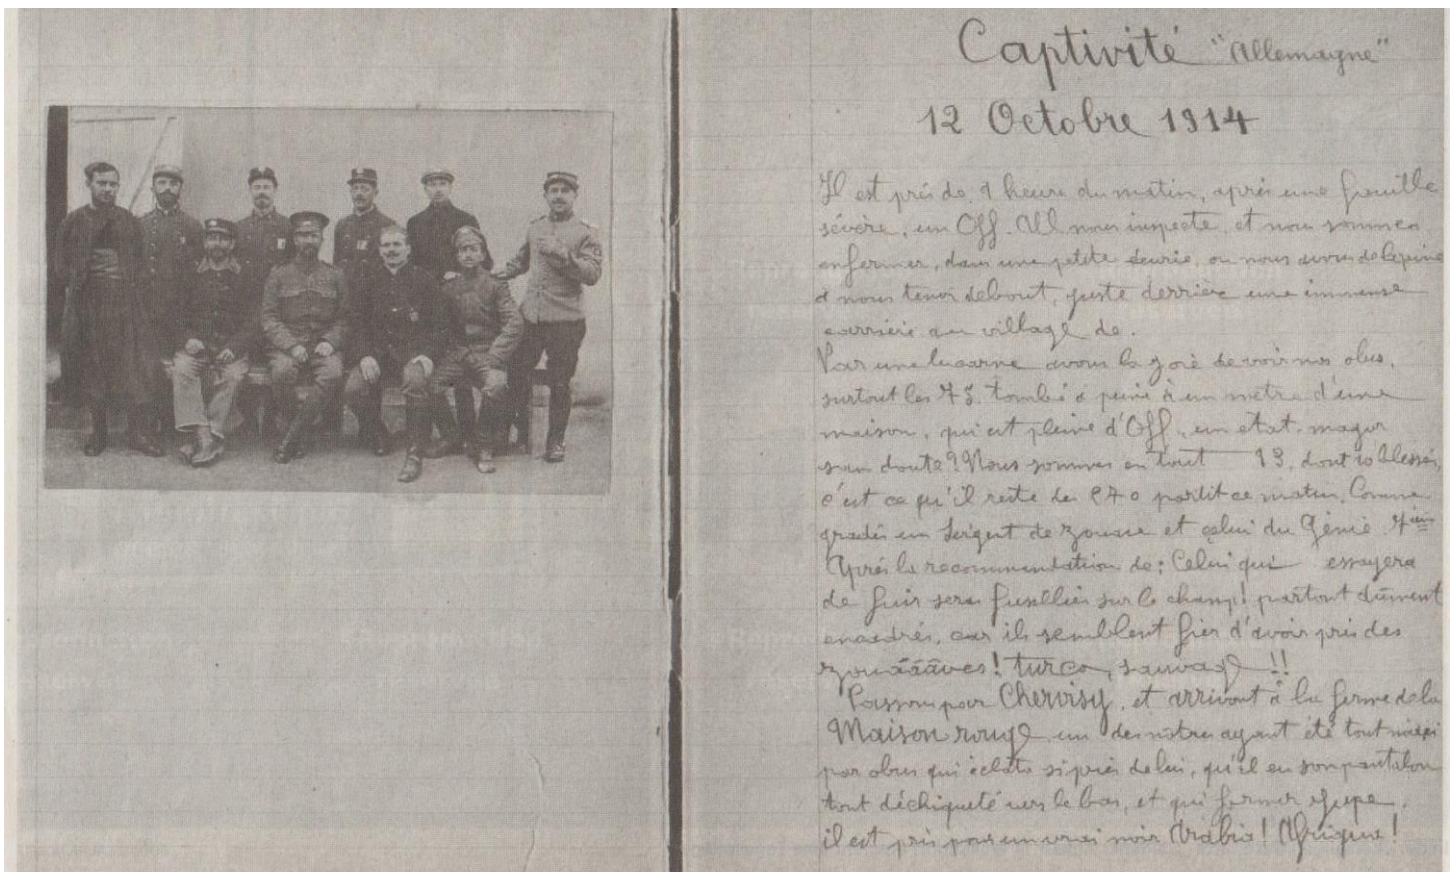 Captivité "Allemagne"
12 Octobre 1914
Il est près de 1 heure du matin, après une fouille
sévère, un Off. All nous inspecte, et nous sommes
enfermer, dans une petite écurie, ou nous avons de la peine
a nous tenir debout, juste derrière une immense
carrière au village de.
Par une lucarne avons la joie de voir nos obus,
surtout les 75. tombé a peine à un mètre d'une
maison, qui est pleine d'Off., un état-major
sans doute? Nous sommes en tout 13, dont 10 blessés,
c'est ce qu'il reste des 270 partit ce matin. Comme
gradés un Sergent de zouave et celui du Génie
Après la recommendation de: Celui qui essayera
de fuir sera fusillier sur le champ! partout dûment
encadrés, car ils semblent fier d'avoir pris des
zouââââves! turco, sauvage!!
Passons par Chervisy, et arrivont à la ferme de la
Maison rouge un des nôtres ayant été tout
par obus qui éclata si près de lui, qu'il en son pantalon
tout déchiqueté vers le bas, et qui former jupe.
il est pris pour un vrai noir Arabia! Afrique!